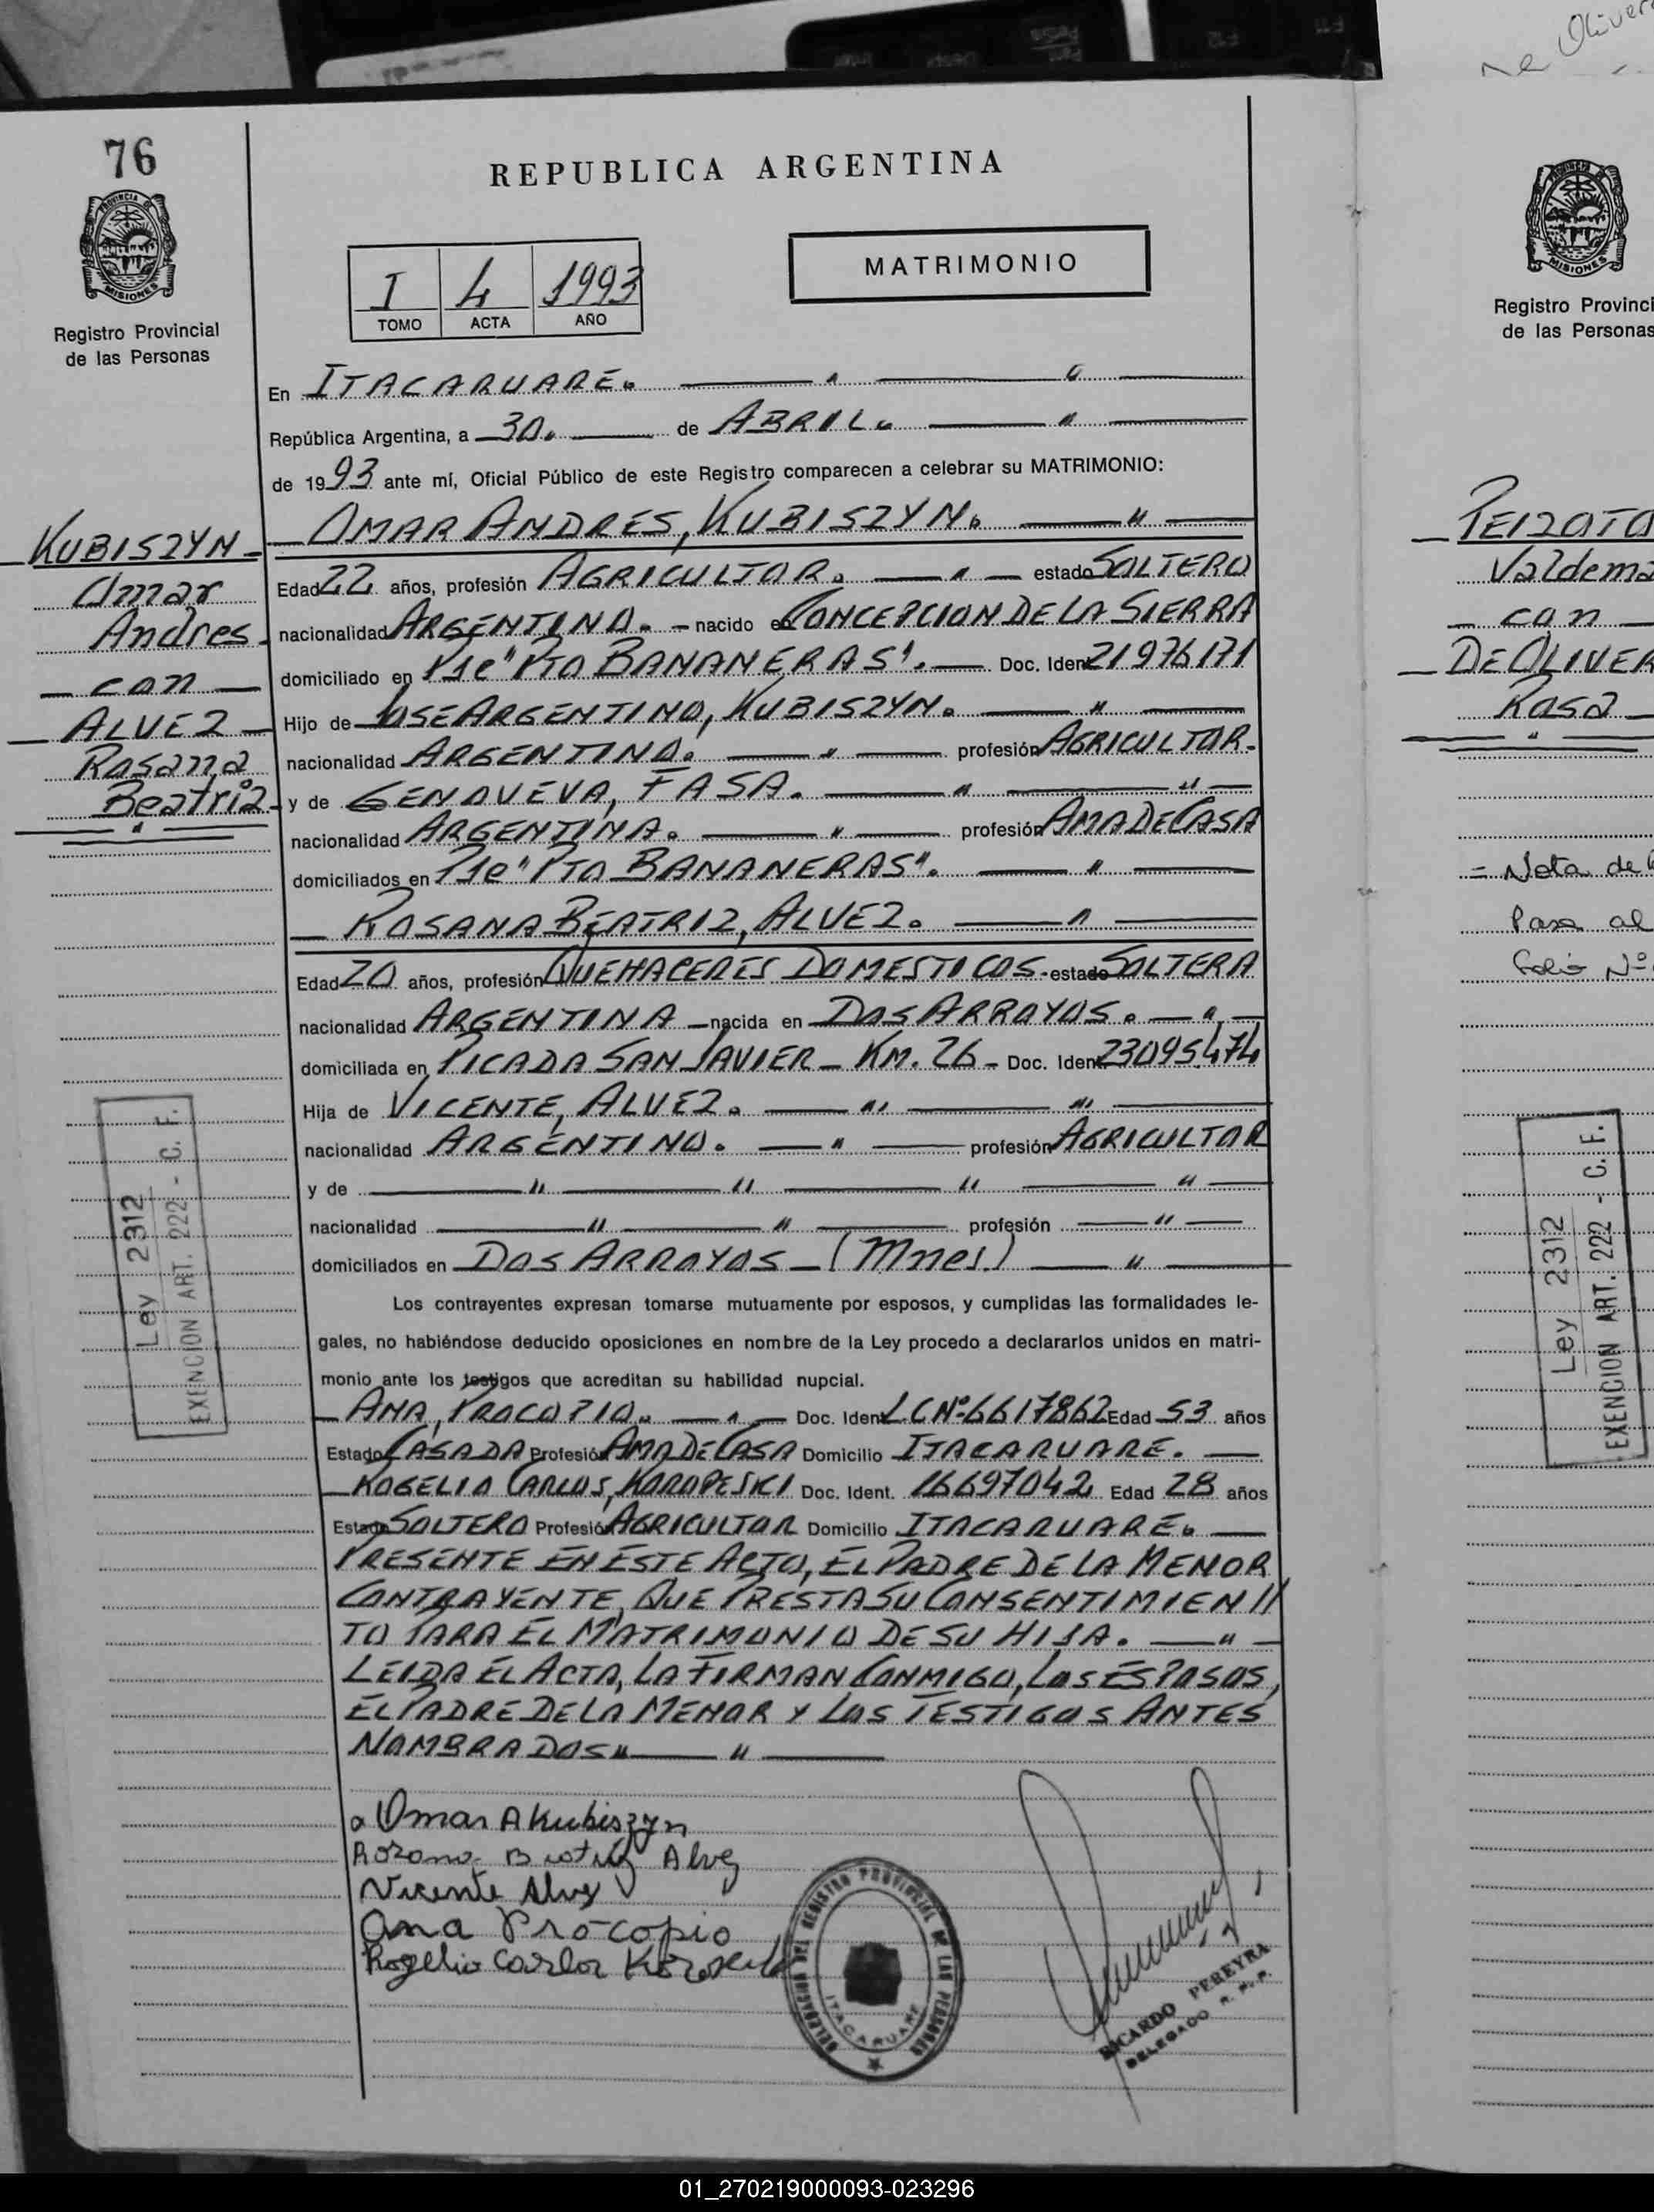 76
PROVINCIA DE
MISIONES
Registro Provincial
de las Personas
REPUBLICA ARGENTINA
I 4 1993
TOMO ACTA AÑO
MATRIMONIO
En ITACARUARE.
República Argentina, a 30. de ABRIL.
de 1993 ante mí, Oficial Público de este Registro comparecen a celebrar su MATRIMONIO:
OMAR ANDRES, KUBISZYN.
Edad 22 años, profesión AGRICULTOR. estado SOLTERO
nacionalidad ARGENTINO. - nacido en CONCEPCION DE LA SIERRA
domiciliado en Pje "Pto BANANERAS". Doc. Iden 21976171
Hijo de JOSE ARGENTINO, KUBISZYN.
nacionalidad ARGENTINO. profesión AGRICULTOR.
y de GENOVEVA, FASA.
nacionalidad ARGENTINA. profesión AMA DE CASA
domiciliados en Pje "Pto BANANERAS".
ROSANA BEATRIZ, ALVEZ.
Edad 20 años, profesión QUEHACERES DOMESTICOS. estado SOLTERA
nacionalidad ARGENTINA nacida en DOS ARROYOS.
domiciliada en PICADA SAN JAVIER - KM. 26 - Doc. Iden 23095474
Hija de VICENTE, ALVEZ.
nacionalidad ARGENTINO. profesión AGRICULTOR
y de
nacionalidad profesión
domiciliados en DOS ARROYOS - (Mnes)
Los contrayentes expresan tomarse mutuamente por esposos, y cumplidas las formalidades le-
gales, no habiéndose deducido oposiciones en nombre de la Ley procedo a declararlos unidos en matri-
monio ante los testigos que acreditan su habilidad nupcial.
ANA, PROCOPIO. Doc. Iden LC Nº 6617862 Edad 53 años
Estado CASADA Profesión AMA DE CASA Domicilio ITACARUARE.
ROGELIO CARLOS, KOROPESKI Doc. Ident. 16697042 Edad 28 años
Estado SOLTERO Profesión AGRICULTOR Domicilio ITACARUARE.
PRESENTE EN ESTE ACTO, EL PADRE DE LA MENOR
CONTRAYENTE, QUE PRESTA SU CONSENTIMIEN//
TO PARA EL MATRIMONIO DE SU HIJA.
LEIDA EL ACTA, LA FIRMAN CONMIGO, LOS ESPOSOS,
EL PADRE DE LA MENOR Y LOS TESTIGOS ANTES
NOMBRADOS
Omar A Kubiszyn
Rozana Beatriz Alvez
Vicente Alvez
Ana Procopio
Rogelio Carlos
DELEGACION DEL REGISTRO PROVINCIAL DE LAS PERSONAS
ITACARUARE
RICARDO PEREYRA
DELEGADO R. P. P.
KUBISZYN
Omar
Andres
con
ALVEZ
Rosana
Beatriz
Ley 2312
EXENCION ART. 222 - C. F.
de Oliver
MISIONES
Registro Provinci
de las Personas
PEIZOTO
Valdema
con
DE OLIVER
Rosa
= Nota de
Pasa al
folio Nº
Ley 2312
EXENCION ART. 222 - C. F.
01_270219000093-023296